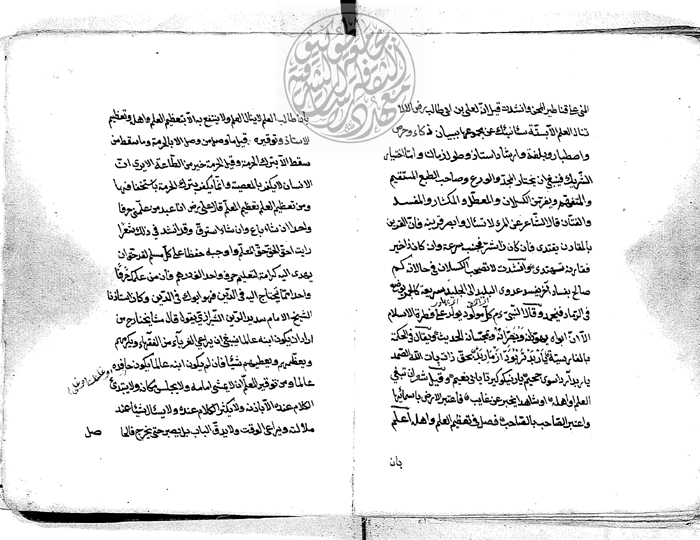 المنى عاقنا طير المحن وانشدت قيل انه لعلى بن ابى طالب رض الا لا
تنال العلم الا بستة سأنبيك عن مجموعها ببيان ذكاء وحرص
واصطبار وبلغة وارشاد استاذ وطول زمان واما اختيار
الشريك فينبغى ان يختار المجد والورع وصاحب الطبع المستقيم
والمتفهم ويفر من الكسلان والمعطل والمكثار والمفسد
والفتان قال الشاعر عن المرء لا تسأل وابصر قرينه فان القرين
بالمقارن يقتدى فان كان ذا شر فجنبه سرعة وان كان ذا خير
فقارنه تهتدى وانشدت لا تصحب الكسلان فى حالاته كم
صالح بفساد آخر يفسد عدوى البليد الى الجليد سريعة كالجمر يوضع
فى الرماد فيخمد وقال النبى كل مولود يولد على فطرة الاسلام
الا ان ابواه يهودانه وينصرانه ويمجسانه الحديث ويقال فى الحكمة
بالفارسية يار بد بدتر بود از مار بد بحق ذات پاك الله الصمد
يار بد آرد ترا سوى جحيم يار نيكو گير تا يابى نعيم وقيل شعر ان تبغى
العلم واهله او شاهدا يخبر عن غايب فاعتبر الارض باسمائها
واعتبر الصاحب بالصاحب فصل فى تعظيم العلم واهله اعلم
بان
بان طالب العلم لا ينال العلم ولا ينتفع به الا بتعظيم العلم واهله وتعظيم
الاستاذ وتوقيره قيل ما وصل من وصل الا بالحرمة وما سقط من
سقط الا بترك الحرمة وقيل الحرمة خير من الطاعة الا يرى ان
الانسان لا يكفر بالمعصية وانما يكفر بترك الحرمة باستخفافها
ومن تعظيم العلم تعظيم المعلم قال على رض انا عبد من علمنى حرفا
واحدا ان شاء باع وان شاء استرق وقد انشد فى ذلك شعرا
رايت احق الحق حق المعلم واوجبه حفظا على كل مسلم لقد حق ان
يهدى اليه كرامة لتعليم حرف واحد الف درهم فان من علمك حرفا
واحدا مما تحتاج اليه فى الدين فهو ابوك فى الدين وكان استاذنا
الشيخ الامام سديد الدين الشيرازى يقول قال مشايخنا رح من
اراد ان يكون ابنه عالما ينبغى ان يراعى الغرباء من الفقهاء ويكرمهم
ويعظمهم ويعطيهم شيئا فان لم يكن ابنه عالما يكون حافده
عالما ومن توقير المعلم ان لا يمشى امامه ولا يجلس مكانه ولا يبتدئ
الكلام عنده الا باذنه ولا يكثر الكلام عنده ولا يسأل شيئا عند
ملالته ويراعى الوقت ولا يدق الباب بل يصبر حتى يخرج فالحا
صل